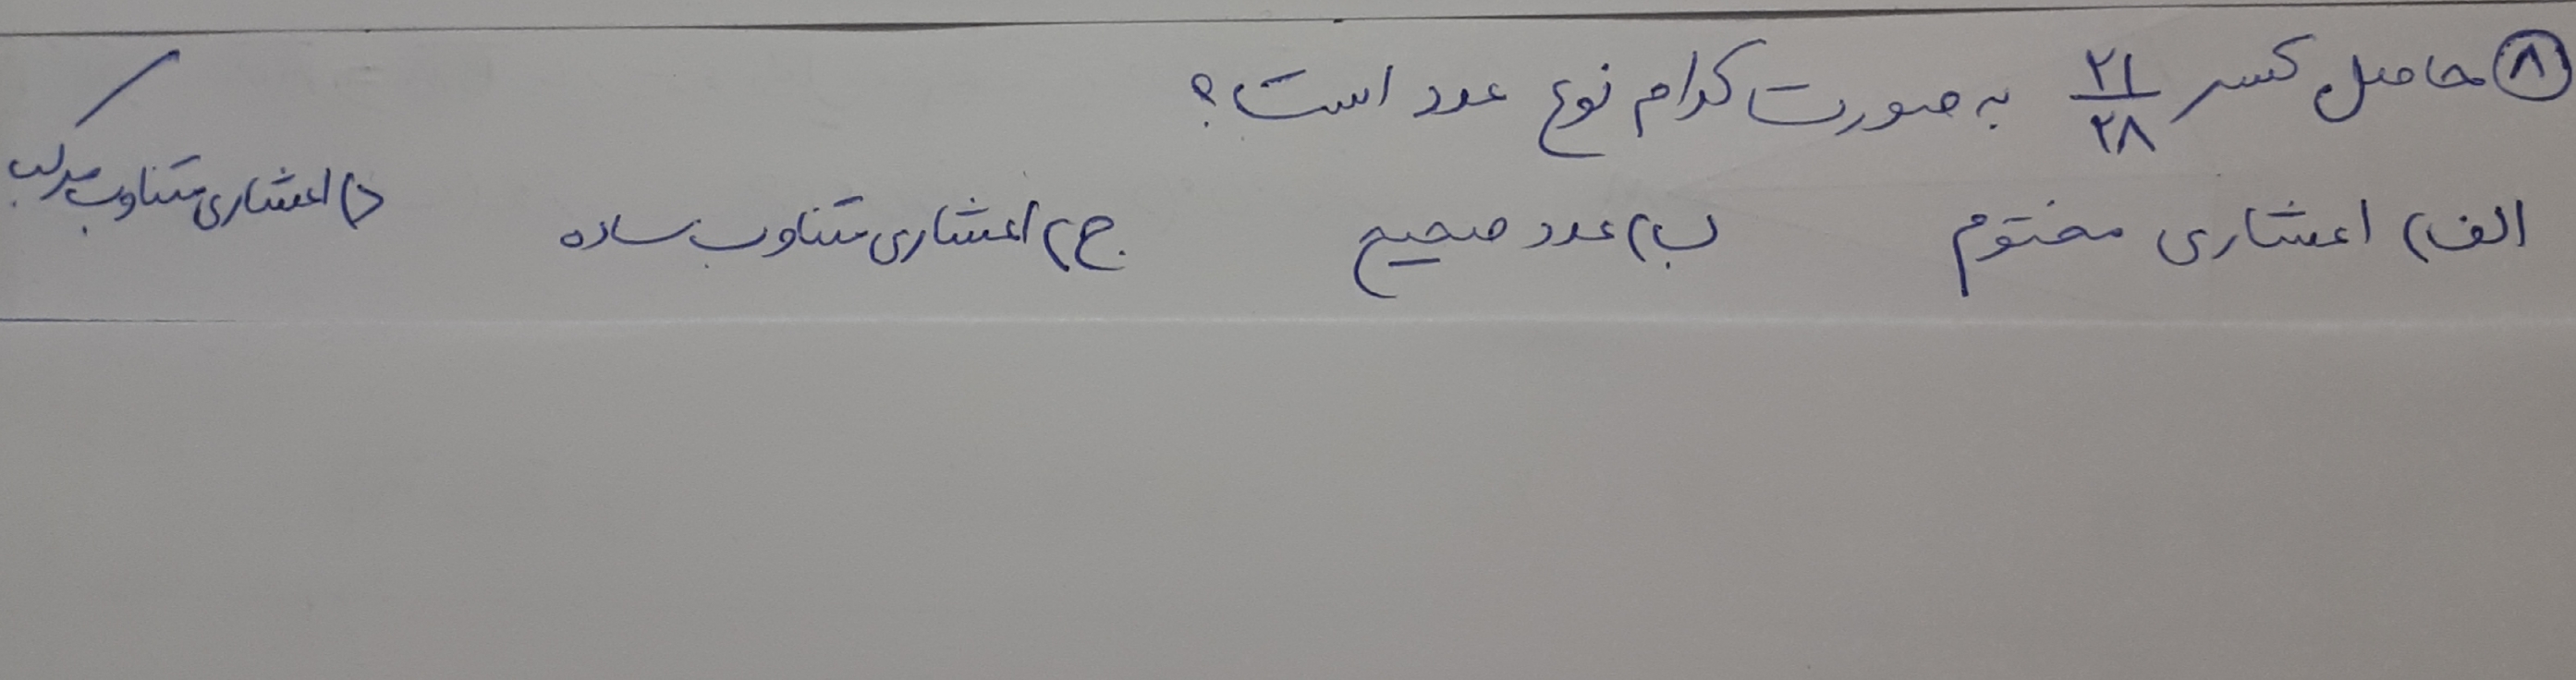 ۸ حاصل کسر ۲۱/۲۸ به صورت کدام نوع عدد است؟
الف) اعشاری مختوم ب) عدد صحیح ج) اعشاری متناوب ساده د) اعشاری متناوب مرکب